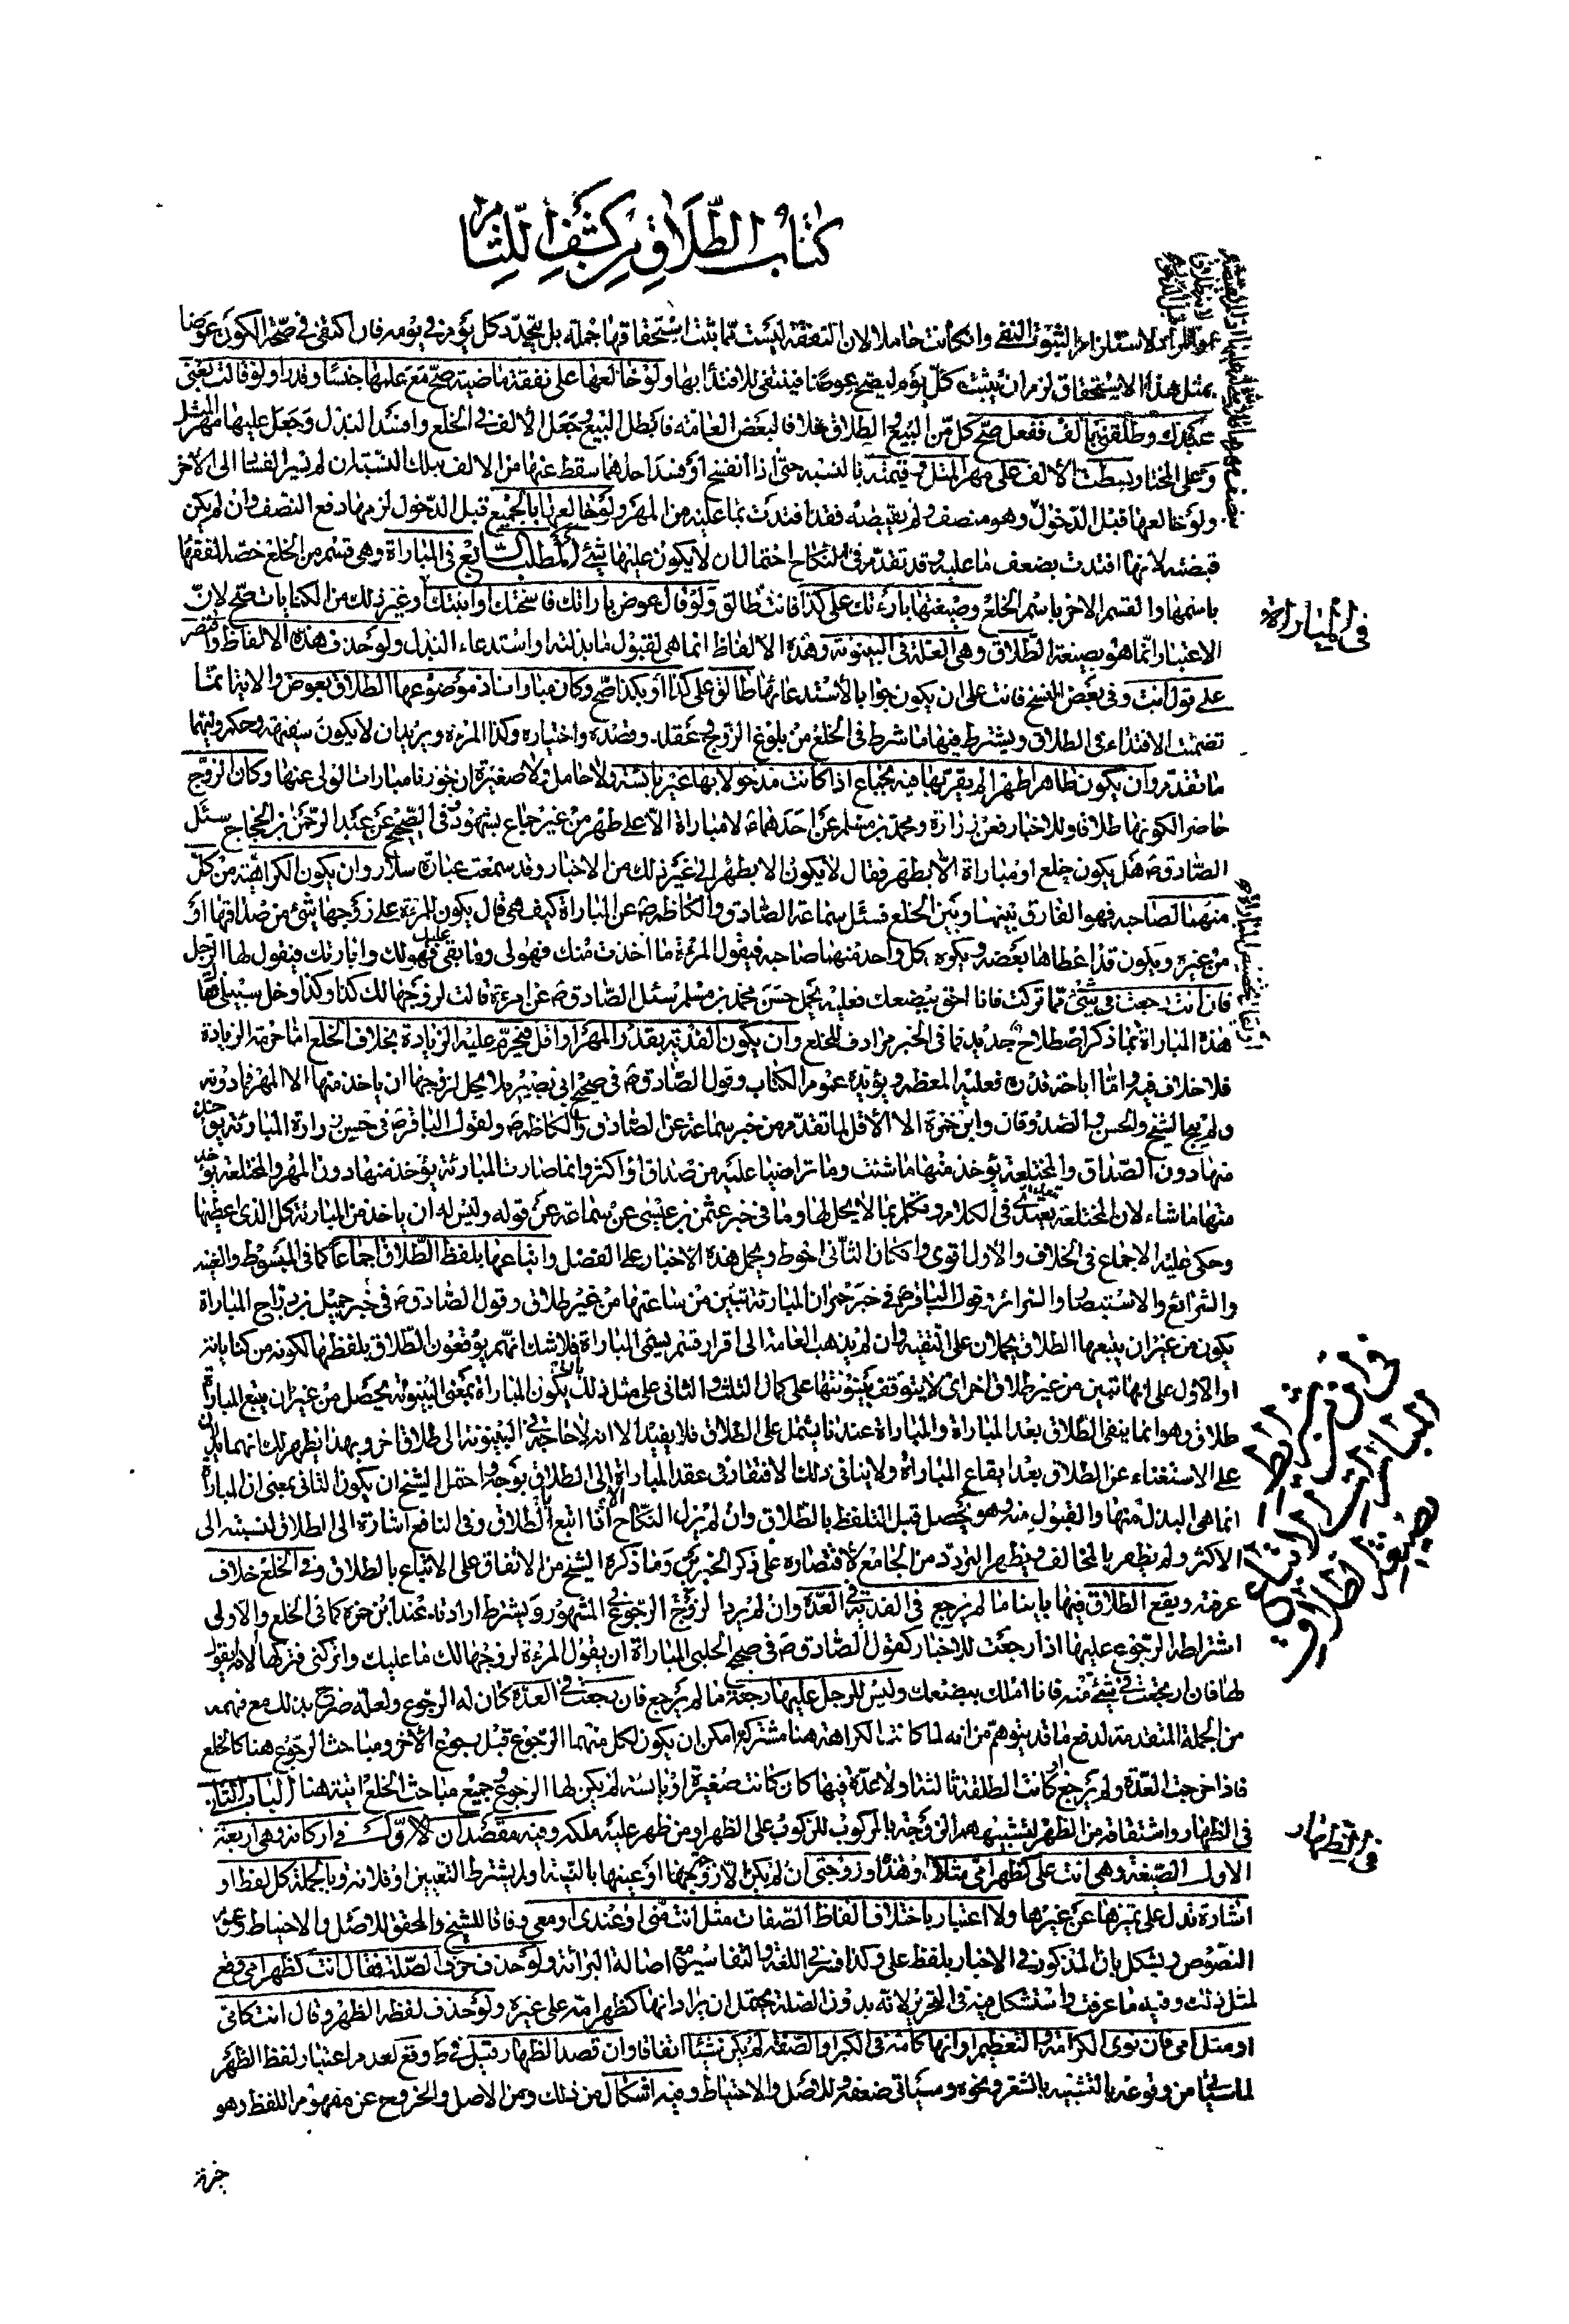 كتاب الطلاق من كشف اللثام
وان كانت حاملا لان النفقة ليست مما يثبت استحقاقها جملة بل يتجدد كل يوم في يومه فان اكتفى في صحة الكون عوضا
بمثل هذا الاستحقاق لزم ان يثبت كل يوم ليصح عوضا فينتفى للافتداء بها ولو خالعها على نفقة ماضية صح مع علمها جنسا وقدرا ولو قالت بعنى
عبدك وطلقنى بألف ففعل صح كل من البيع والطلاق خلافا لبعض العامة فابطل البيع وجعل الالف في الخلع وافسد البذل وجعل عليها مهر المثل
وعلى المختار بسطت الالف على مهر المثل وقيمته بالنسبة حتى اذا انفسخ او فسد احدهما سقط عنها من الالف بتلك النسبة
ولو خالعها قبل الدخول وهو منصف ولم يقبضه فقد افتدت بما عليه من المهر ولو خالعها بالجميع قبل الدخول لزمها دفع النصف وان لم يكن
قبضته لانها افتدت بضعف ما عليه وقد تقدم في النكاح احتمال ان لا يكون عليها شيء المطلب الرابع في المباراة وهى قسم من الخلع خصه الفقهاء
باسمها والقسم الاخر باسم الخلع وصيغتها بارءتك على كذا فانت طالق ولو قال عوض باراتك فاسختك او ابنتك او غير ذلك من الكنايات صح لان
الاعتبار انما هو بصيغة الطلاق وهى العلة في البينونة وهذه الالفاظ انما هى لقبول ما بذلته او استدعاء البذل ولو حذف هذه الالفاظ واقتصر
على قوله انت وفى بعض النسخ فانت على ان يكون جوابا لاستدعائها طالق على كذا او بكذا صح وكان مباراة اذ موضوعها الطلاق بعوض والاتيان بما
تضمنت الافتداء في الطلاق ويشترط فيها ما شرط في الخلع من بلوغ الزوج وعقله وقصده واختياره وكذا المرءة ويريد ان لا يكون سفيهة وحكم وليهما
ما تقدم وان يكون طاهرا طهرا لم يقربها فيه بجماع اذا كانت مدخولا بها غير يائسة ولا حامل ولا صغيرة ان جوزنا مبارات الولى عنها وكان الزوج
حاضرا لكونها طلاقا وللاخبار فعن زرارة ومحمد بن مسلم عن احدهما ع لا مباراة الا على طهر من غير جماع بشهود وفى الصحيح عن عبد الرحمن بن الحجاج سئل
الصادق ع هل يكون خلع او مباراة الا بطهر فقال لا يكون الا بطهر الى غير ذلك من الاخبار وقد سمعت عبارة سلار وان يكون الكراهية من كل
منهما لصاحبه فهو الفارق بينها وبين الخلع فسئل سماعة الصادق والكاظم ع عن المباراة كيف هى قال يكون للمرءة على زوجها شىء من صداقها او
من غيره ويكون قد اعطاها بعضه ويكره كل واحد منهما صاحبه فيقول المرءة ما اخذت منك فهو لى وما بقى عليك فهو لك وابارئك فيقول لها الرجل
فان انت رجعت في شىء مما تركت فانا احق ببضعك فعليه يحمل حسن محمد بن مسلم سئل الصادق ع عن امرءة قالت لزوجها لك كذا وكذا وخل سبيلى فقال
هذه المباراة فما ذكر اصطلاح جديد فما في الخبر مرادف للخلع وان يكون الفدية بقدر المهر او اقل فيحرم عليه الزيادة بخلاف الخلع اما حرمة الزيادة
فلا خلاف فيه واما اباحة قدره فعليه المعظم ويؤيده عموم الكتاب وقول الصادق ع في صحيح ابى بصير فلا يحل لزوجها ان ياخذ منها الا المهر فما دونه
ولم يبح الشيخ والحسن والصدوقان وابن حمزة الا الاقل لما تقدم من خبر سماعة عن الصادق والكاظم ع ولقول الباقر ع في حسن زرارة المبارئة يؤخذ
منها دون الصداق والمختلعة يؤخذ منها ما شئت وما تراضيا عليه من صداق او اكثر وانما صارت المبارئة يؤخذ منها دون المهر والمختلعة يؤخذ
منها ما شاء لان المختلعة تعتدى في الكلام وتكلم بما لا يحل لها وما في خبر عثمن بن عيسى عن سماعة من قوله وليس له ان ياخذ من المبارئة كل الذى اعطيها
وحكى عليه الاجماع في الخلاف والاول اقوى وان كان الثانى احوط ويحمل هذه الاخبار على الفضل واتباعها بلفظ الطلاق اجماعا كما في المبسوط والغنية
والشرائع والاستبصار والسرائر وقول الباقر ع في خبر حمران المبارئة تبين من ساعتها من غير طلاق وقول الصادق ع في خبر جميل بن دراج المباراة
يكون من غير ان يتبعها الطلاق يحملان على التقية وان لم يذهب العامة الى اقرار قسم يسمى المباراة فلا شك انهم يوقعون الطلاق بلفظها لكونه من كناياته
او الاول على انها تبين من غير طلاق اخر اى لا يتوقف بينونتها على كمال الثلث والثانى على مثل ذلك يكون المباراة بمعنى البينونة يحصل من غير ان يتبع المباراة
طلاق وهو انما ينفى الطلاق بعد المباراة والمباراة عندنا يشتمل على الطلاق فلا يفيد الا انه لا حاجة في البينونة الى طلاق اخر وبهذا يظهر لك انهما يدلان
على الاستغناء عن الطلاق بعد ايقاع المباراة ولا ينافى ذلك الافتقار في عقد المباراة الى الطلاق بوجه واحتمل الشيخ ان يكون الثانى بمعنى ان المباراة
انما هى البذل منها والقبول منه وهو يحصل قبل التلفظ بالطلاق وان لم يزل النكاح الا اذا اتبع بالطلاق وفى النافع اشارة الى الطلاق لنسبته الى
الاكثر ولم يظهر بالمخالف ويظهر التردد من الجامع لاقتصاره على ذكر الخبرين وما ذكره الشيخ من الاتفاق على الاتباع بالطلاق وفى الخلع خلاف
عرفته ويقع الطلاق فيها باينا ما لم يرجع في الفدية في العدة وان لم يرد الزوج الرجوع في المشهور ويشترط ارادته عند ابن حمزة كما في الخلع والاولى
اشتراط الرجوع عليها اذا رجعت للاخبار كقول الصادق ع في صحيح الحلبى المباراة ان يقول المرءة لزوجها لك ما عليك واتركنى فتركها الا انه يقول
لها فان ارتجعت في شىء منه فانا املك ببضعك وليس للرجل عليها رجعة ما لم يرجع فان رجعت في العدة كان له الرجوع ولعله صرح بذلك مع فهمه
من الجملة المتقدمة لدفع ما قد يتوهم من انه لما كانت الكراهة هنا مشتركة امكن ان يكون لكل منهما الرجوع قبل رجوع الاخر ومباحث الرجوع هنا كالخلع
فاذا خرجت العدة ولم يرجع او كانت الطلقة ثالثة او لا عدة فيها كان كانت صغيرة او يائسة لم يكن لها الرجوع وجميع مباحث الخلع اتية هنا الباب الثانى
في الظهار واشتقاقه من الظهر لتشبيههم الزوجة بالمركوب للركوب على الظهر او من ظهر عليه ملكه وفيه مقصدان الاول في اركانه وهى اربعة
الاول الصيغة وهى انت على كظهر امى مثلا او هذه او زوجتى ان لم يكن الا زوجة او عينها بالنية او لم يشترط التعيين او فلانة وبالجملة كل لفظ او
اشارة تدل على تميزها عن غيرها ولا اعتبار باختلاف الفاظ الصفات مثل انت منى او عندى او معى وفاقا للشيخ والمحقق للاصل والاحتياط وعموم
النصوص ويشكل بان المذكور في الاخبار بلفظ على وكذا فسر في اللغة والتفاسير مع اصالة البرائة ولو حذف حرف الصلة فقال انت كظهر امى وقع
لمثل ذلك وفيه ما عرفت واستشكل فيه في التحرير لانه بدون الصلة يحتمل ان يراد انها كظهر امه على غيره ولو حذف لفظة الظهر وقال انت كامى
او مثل امى فان نوى الكرامة والتعظيم او انها كامه في الكبر او الصفة لم يكن شيئا اتفاقا وان قصد الظهار قيل في ط وقع لعدم اعتبار لفظ الظهر
لما سيأتى من وقوعه بالتشبيه بالشعر ونحوه وسيأتى ضعفه وللاصل والاحتياط وفيه اشكال من ذلك ومن الاصل والخروج عن مفهوم اللفظ وهو
في المباراة
في الظهار